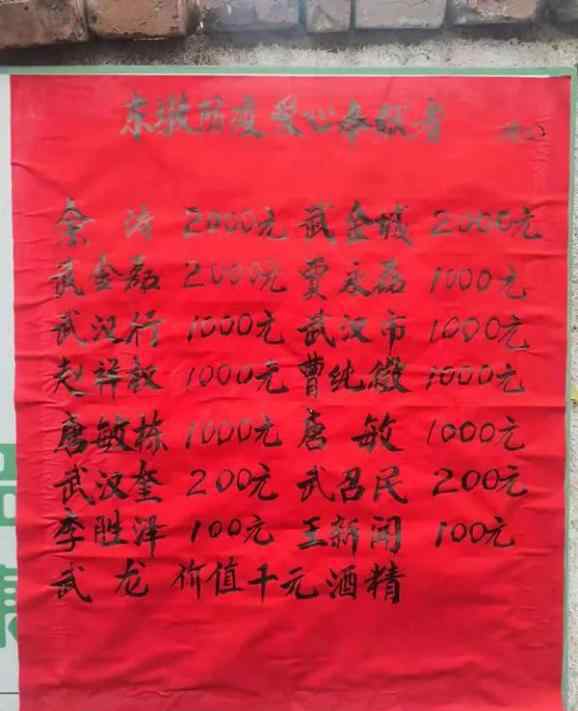 东墩防疫爱心奉献者
余涛 2000元 武金城 2000元
武金磊 2000元 贾永磊 1000元
武汉行 1000元 武汉市 1000元
赵祥敏 1000元 曹纯徽 1000元
唐敏栋 1000元 唐敏 1000元
武汉奎 200元 武召民 200元
李胜泽 100元 王新闻 100元
武龙 价值千元酒精